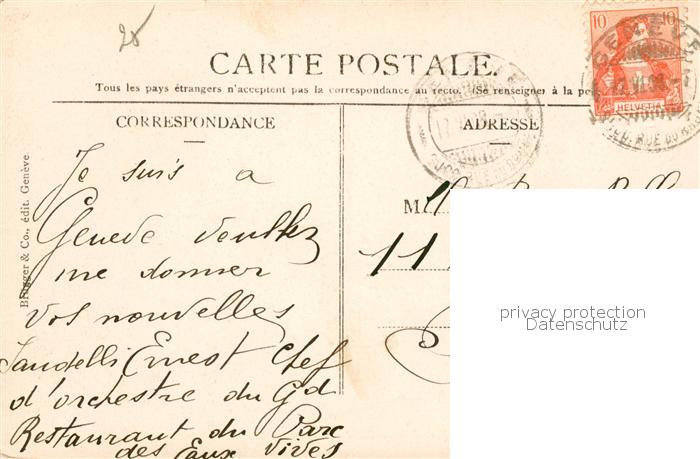 25
CARTE POSTALE.
Tous les pays étrangers n'acceptent pas la correspondance au recto. (Se renseigner à la po
CORRESPONDANCE
ADRESSE
10 10
HELVETIA
GENEVE
RUE DU
Brugger & Co., édit. Genève.
Je suis a
Geneve veuillez
me donner
vos nouvelles
Jandelli Ernest Chef
d'orchestre du Gd
Restaurant du Parc
des Eaux Vives
M
11
privacy protection
Datenschutz